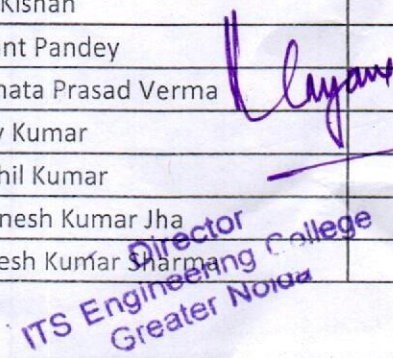 Kishan
nt Pandey
nata Prasad Verma
Kumar
hil Kumar
nesh Kumar Jha
esh Kumar Sharma
Director
ITS Engineering College
Greater Noida